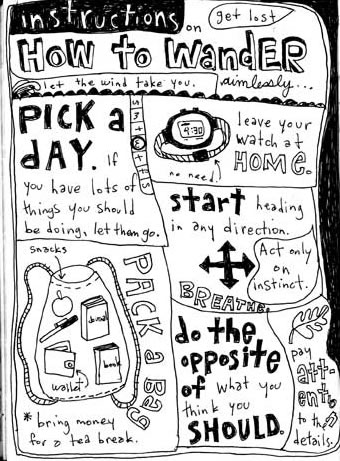 instructions on
get lost
HOW to WANDER
let the wind take you. aimlessly...
PICK a
dAY. If
you have lots of
things you should
be doing, let them go.
S M T W T F S
4:30
no need
leave your
watch at
HOME.
start heading
in any direction.
Act only
on
instinct.
BREATHE.
snacks
PACK a BAG
journal
book
wallet
* bring money
for a tea break.
do the
opposite
of what you
think you
SHOULD.
pay
att-
ent.
to the
details.